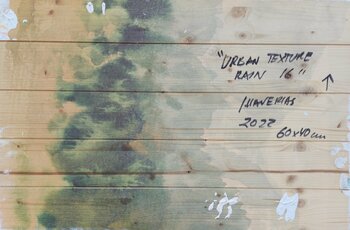 "URBAN TEXTURE
RAIN 16"
2022
60x40cm